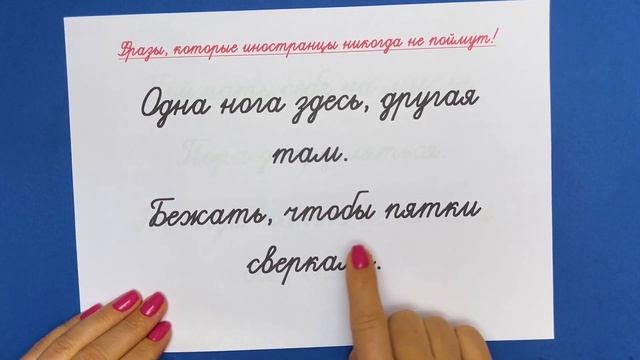 Фразы, которые иностранцы никогда не поймут!
Одна нога здесь, другая
там.
Бежать, чтобы пятки